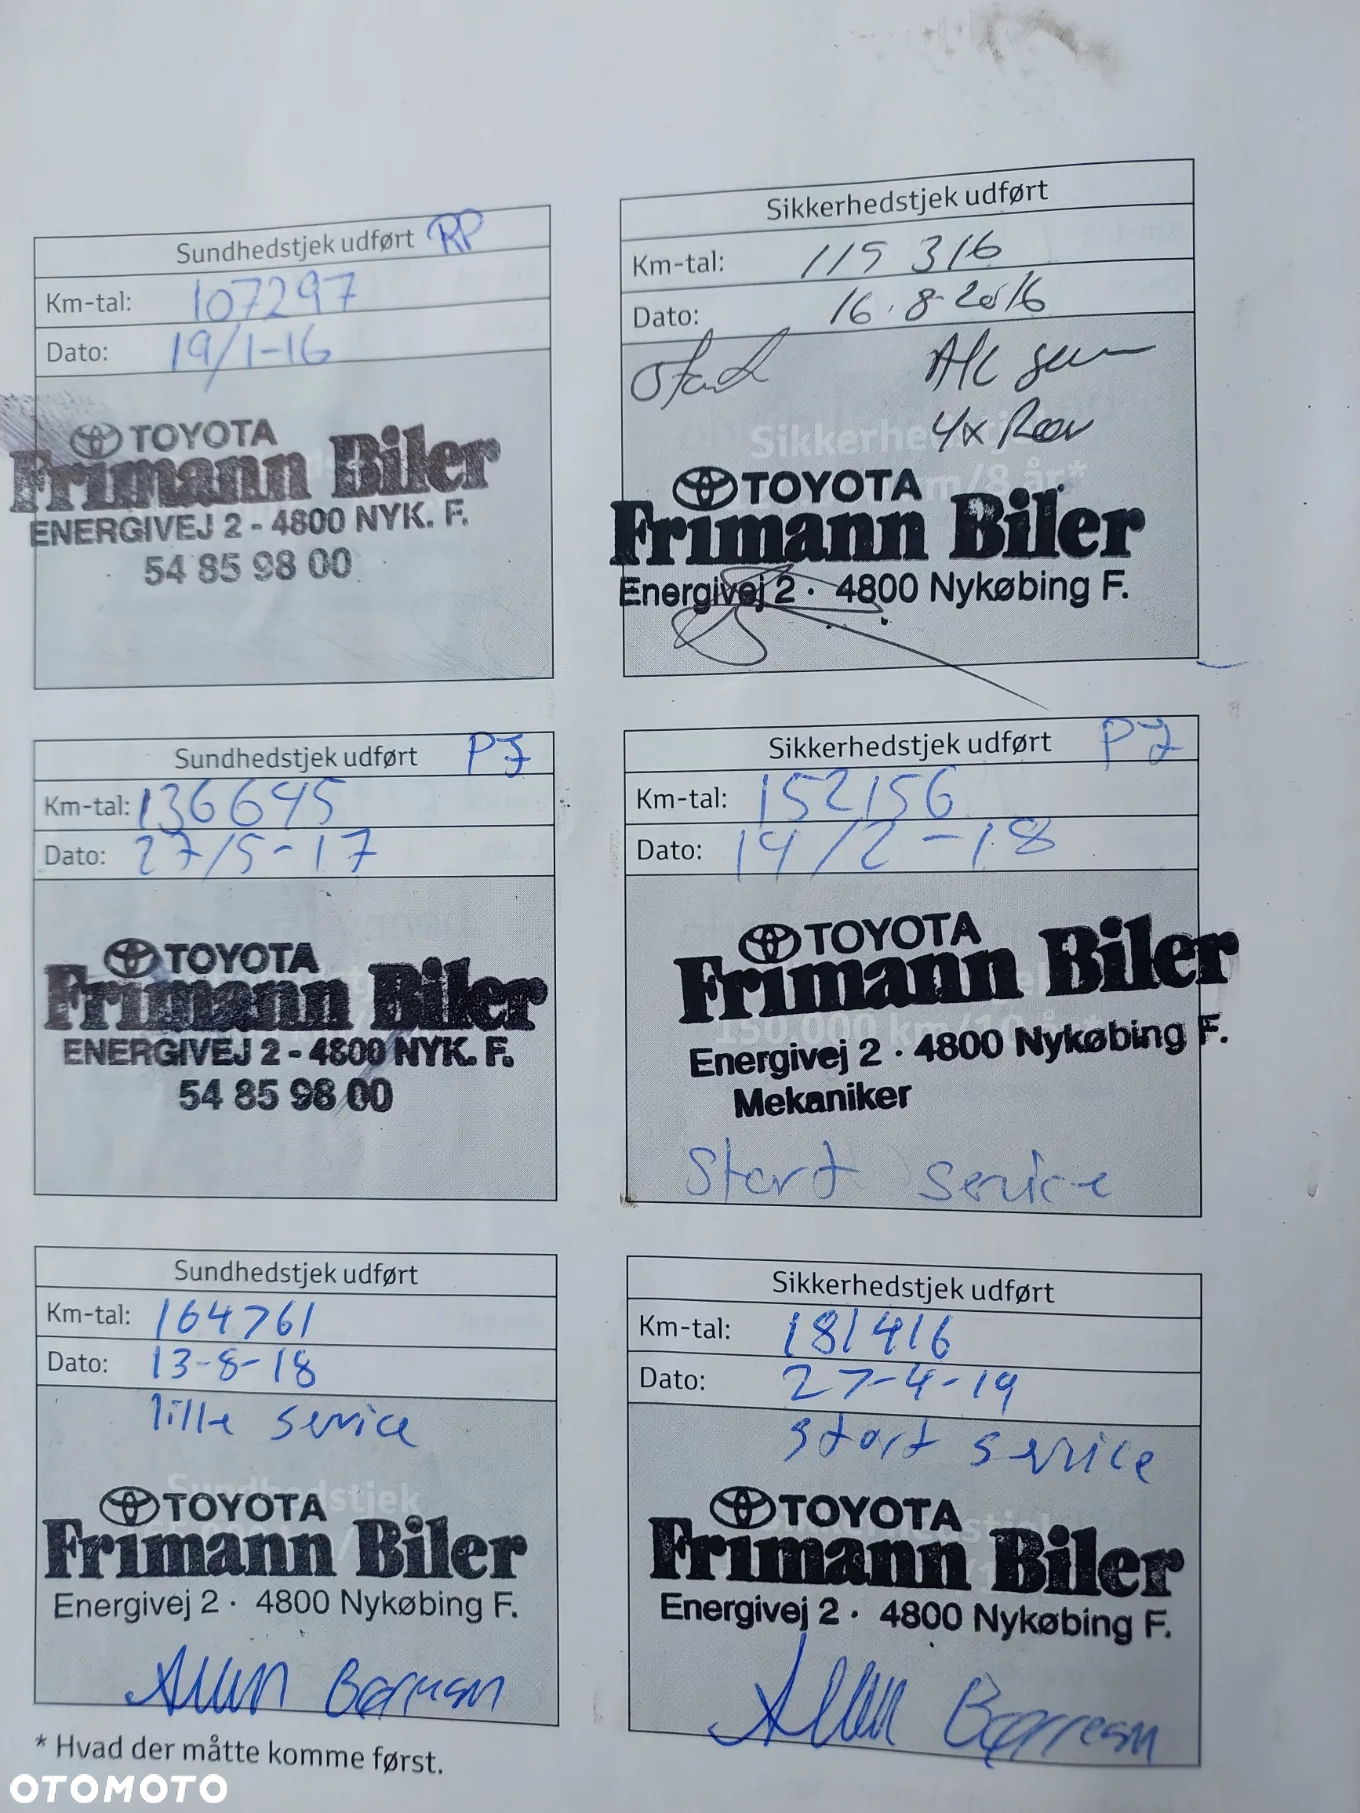 Sundhedstjek udført RP
Km-tal: 107297
Dato: 19/1-16
TOYOTA
Frimann Biler
ENERGIVEJ 2 - 4800 NYK. F.
54 85 98 00
Sikkerhedstjek udført
Km-tal: 115 316
Dato: 16.8-2016
A/C
4x
Sikkerhedstjek
km/8 år*
TOYOTA
Frimann Biler
Energivej 2 · 4800 Nykøbing F.
Sundhedstjek udført PJ
Km-tal: 136645
Dato: 27/5-17
TOYOTA
Frimann Biler
ENERGIVEJ 2 - 4800 NYK. F.
54 85 98 00
Sikkerhedstjek udført PJ
Km-tal: 152156
Dato: 14/2-18
TOYOTA
Frimann Biler
150.000 km/10 år*
Energivej 2 · 4800 Nykøbing F.
Mekaniker
Stort service
Sundhedstjek udført
Km-tal: 164761
Dato: 13-8-18
lille service
Sundhedstjek
TOYOTA
Frimann Biler
Energivej 2 · 4800 Nykøbing F.
Allan Børresen
Sikkerhedstjek udført
Km-tal: 181416
Dato: 27-4-19
stort service
Sikkerhedstjek
TOYOTA
Frimann Biler
Energivej 2 · 4800 Nykøbing F.
Allan Børresen
* Hvad der måtte komme først.
OTOMOTO